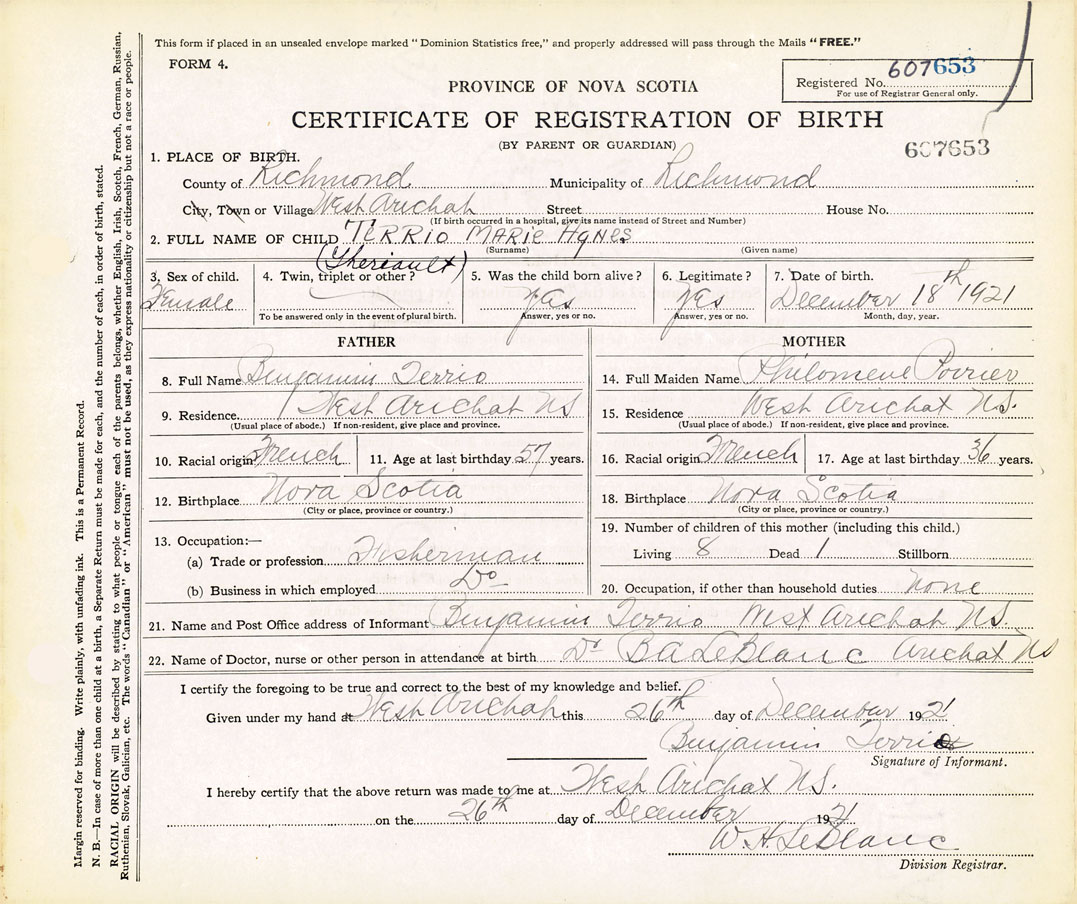 This form if placed in an unsealed envelope marked "Dominion Statistics free," and properly addressed will pass through the Mails "FREE."
FORM 4.
Registered No. 607653
For use of Registrar General only.
PROVINCE OF NOVA SCOTIA
CERTIFICATE OF REGISTRATION OF BIRTH
(BY PARENT OR GUARDIAN)
607653
1. PLACE OF BIRTH.
County of Richmond Municipality of Richmond
City, Town or Village West Arichat Street House No.
(If birth occurred in a hospital, give its name instead of Street and Number)
2. FULL NAME OF CHILD TERRIO MARIE AGNES
(Surname) (Given name)
(Theriault)
3. Sex of child. 4. Twin, triplet or other? 5. Was the child born alive? 6. Legitimate? 7. Date of birth.
Female Yes Yes December 18th 1921
To be answered only in the event of plural birth. Answer, yes or no. Answer, yes or no. Month, day, year.
FATHER MOTHER
8. Full Name Benjamin Terrio 14. Full Maiden Name Philomene Poirier
9. Residence West Arichat NS 15. Residence West Arichat N.S.
(Usual place of abode.) If non-resident, give place and province. (Usual place of abode.) If non-resident, give place and province.
10. Racial origin French 11. Age at last birthday 57 years. 16. Racial origin French 17. Age at last birthday 36 years.
12. Birthplace Nova Scotia 18. Birthplace Nova Scotia
(City or place, province or country.) (City or place, province or country.)
13. Occupation:— 19. Number of children of this mother (including this child.)
(a) Trade or profession Fisherman Living 8 Dead 1 Stillborn
(b) Business in which employed Do 20. Occupation, if other than household duties None
21. Name and Post Office address of Informant Benjamin Terrio West Arichat N.S.
22. Name of Doctor, nurse or other person in attendance at birth Dr B A LeBlanc Arichat NS
I certify the foregoing to be true and correct to the best of my knowledge and belief.
Given under my hand at West Arichat this 26th day of December 1921
Benjamin Terrio
Signature of Informant.
I hereby certify that the above return was made to me at West Arichat N.S.
on the 26th day of December 1921
W. H. LeBlanc
Division Registrar.
Margin reserved for binding. Write plainly, with unfading ink. This is a Permanent Record.
N. B.—In case of more than one child at a birth, a Separate Return must be made for each, and the number of each, in order of birth, stated.
RACIAL ORIGIN will be described by stating to what people or tongue each of the parents belongs, whether English, Irish, Scotch, French, German, Russian,
Ruthenian, Slovak, Galician, etc. The words "Canadian" or "American" must not be used, as they express nationality or citizenship but not a race or people.